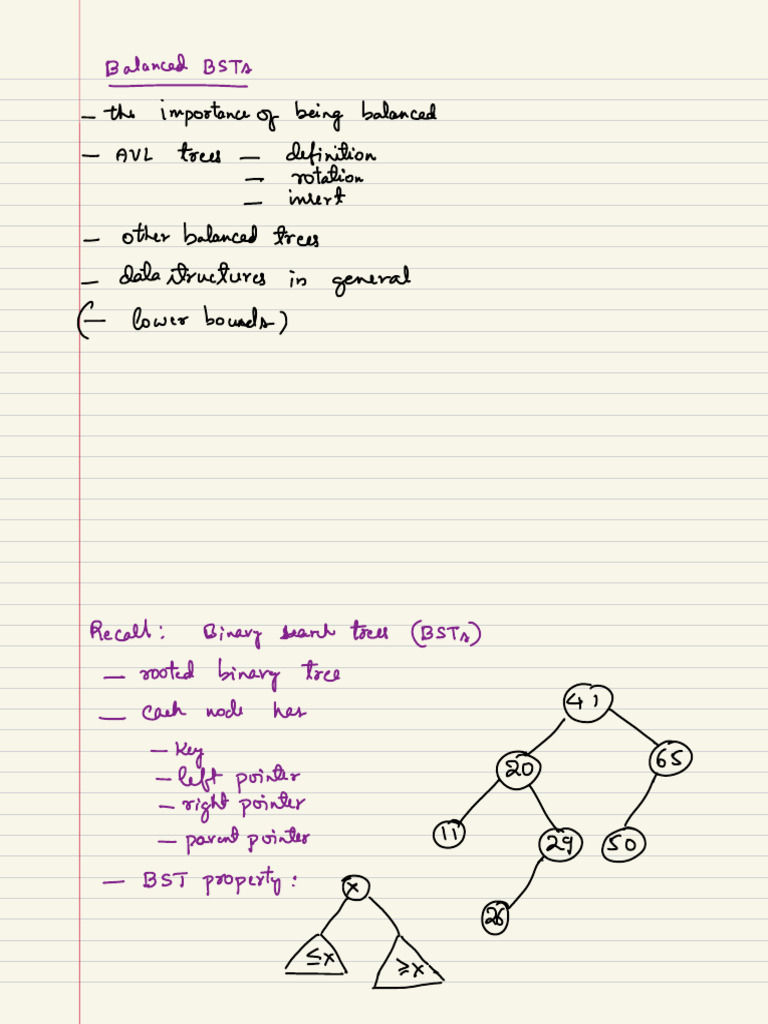 Balanced BSTs
– the importance of being balanced
– AVL trees – definition
– rotation
– insert
– other balanced trees
– data structures in general
(– lower bounds)
Recall: Binary search trees (BSTs)
– rooted binary tree
– each node has
– key
– left pointer
– right pointer
– parent pointer
– BST property:
41
20 65
11 29 50
26
x
≤x ≥x